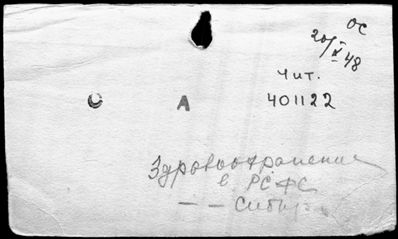 ОС
20/X 48
Чит.
401122
С А
Здравоохранение
в РСФС
— — Сибирь